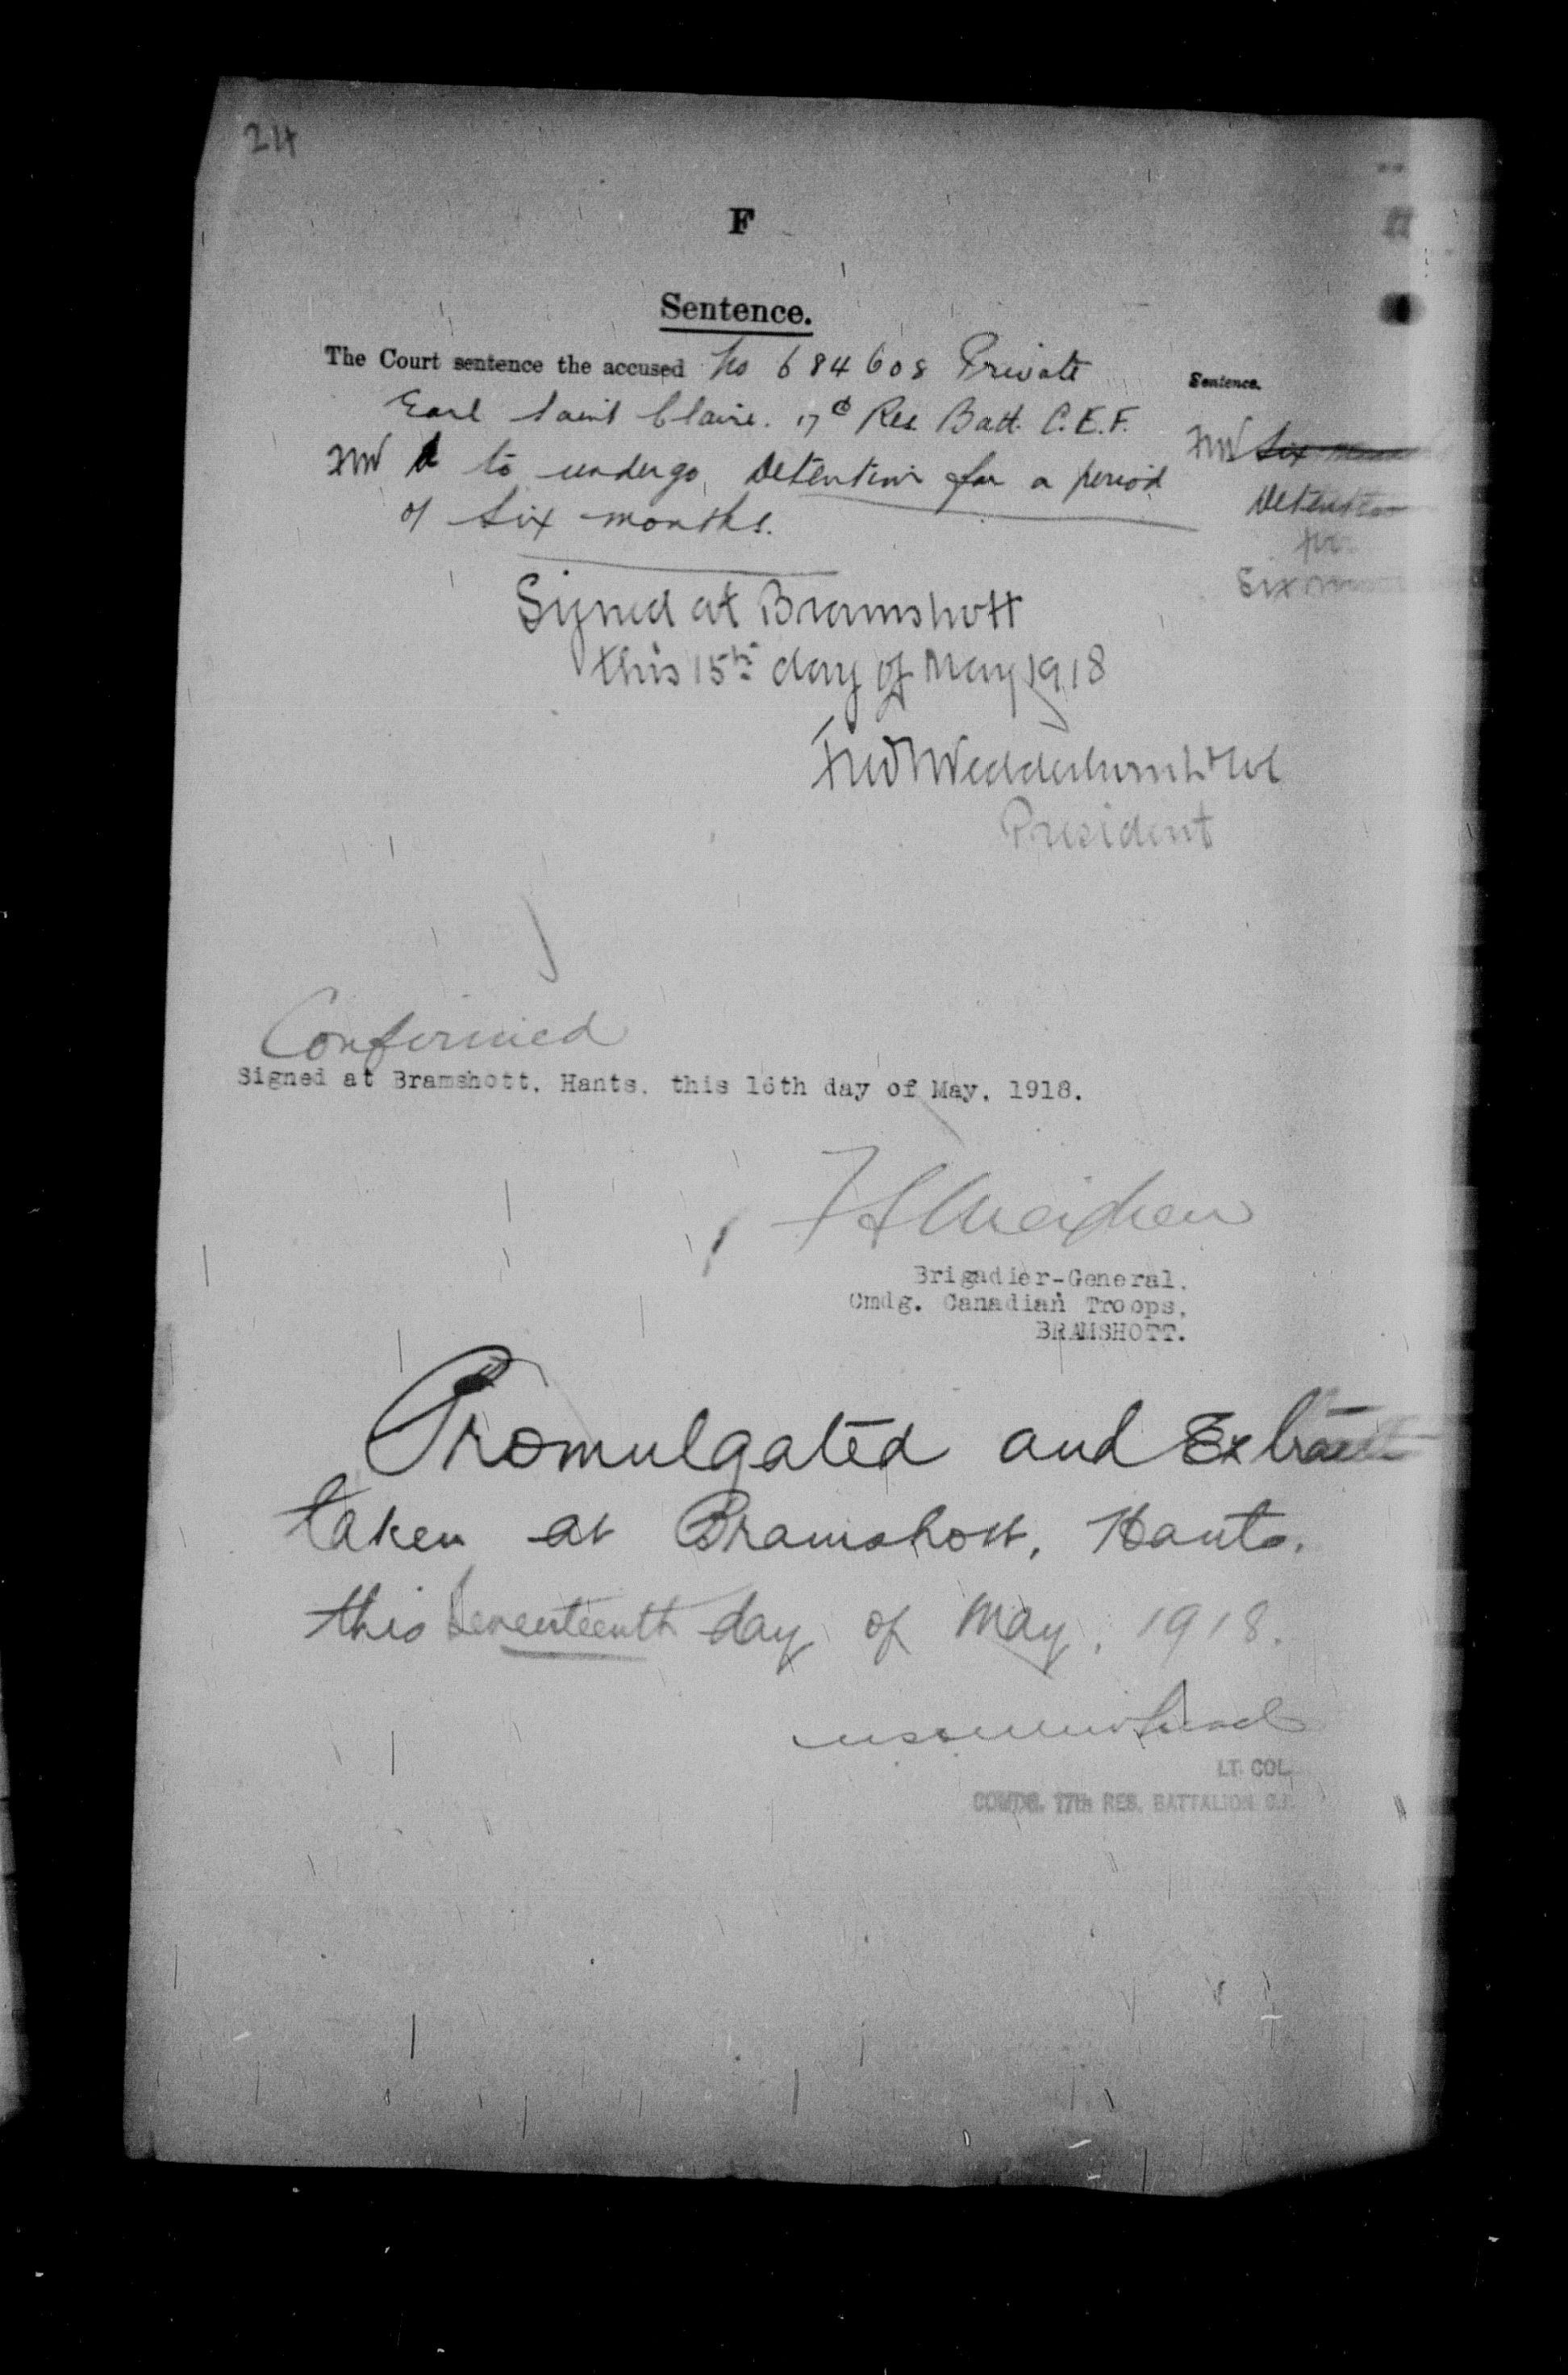 24
F
Sentence.
The Court sentence the accused No 684608 Private
Earl Saint Claire. 17th Res. Batt. C.E.F.
FW to undergo Detention for a period
of Six months.
Sentence.
FW Six
Detention
for
Six
Signed at Bramshott
this 15th day of May 1918
Fred Wedderburn Lt Col
President
Confirmed
Signed at Bramshott. Hants. this 16th day of May. 1918.
Brigadier-General.
Cmdg. Canadian Troops.
BRAMSHOTT.
Promulgated and Extract
taken at Bramshott, Hants.
this Seventeenth day of May. 1918.
LT. COL.
COMDG. 17th RES. BATTALION